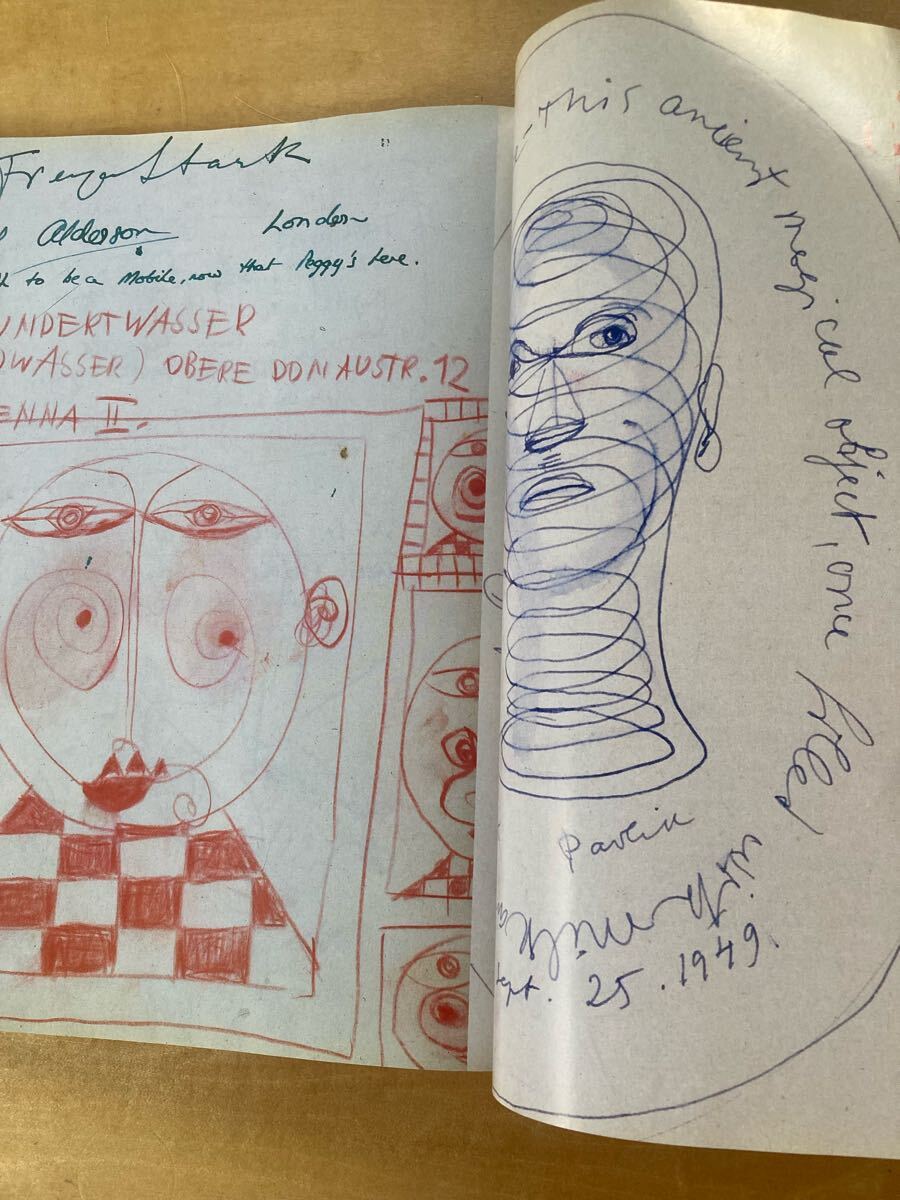 Freya Stark
Alderson London
to be a Mobile, now that Peggy's here.
UNDERTWASSER
OWASSER) OBERE DONAUSTR. 12
ENNA II.
, This ancient magical object, once filled with milk
Pavlik
Sept. 25. 1949.